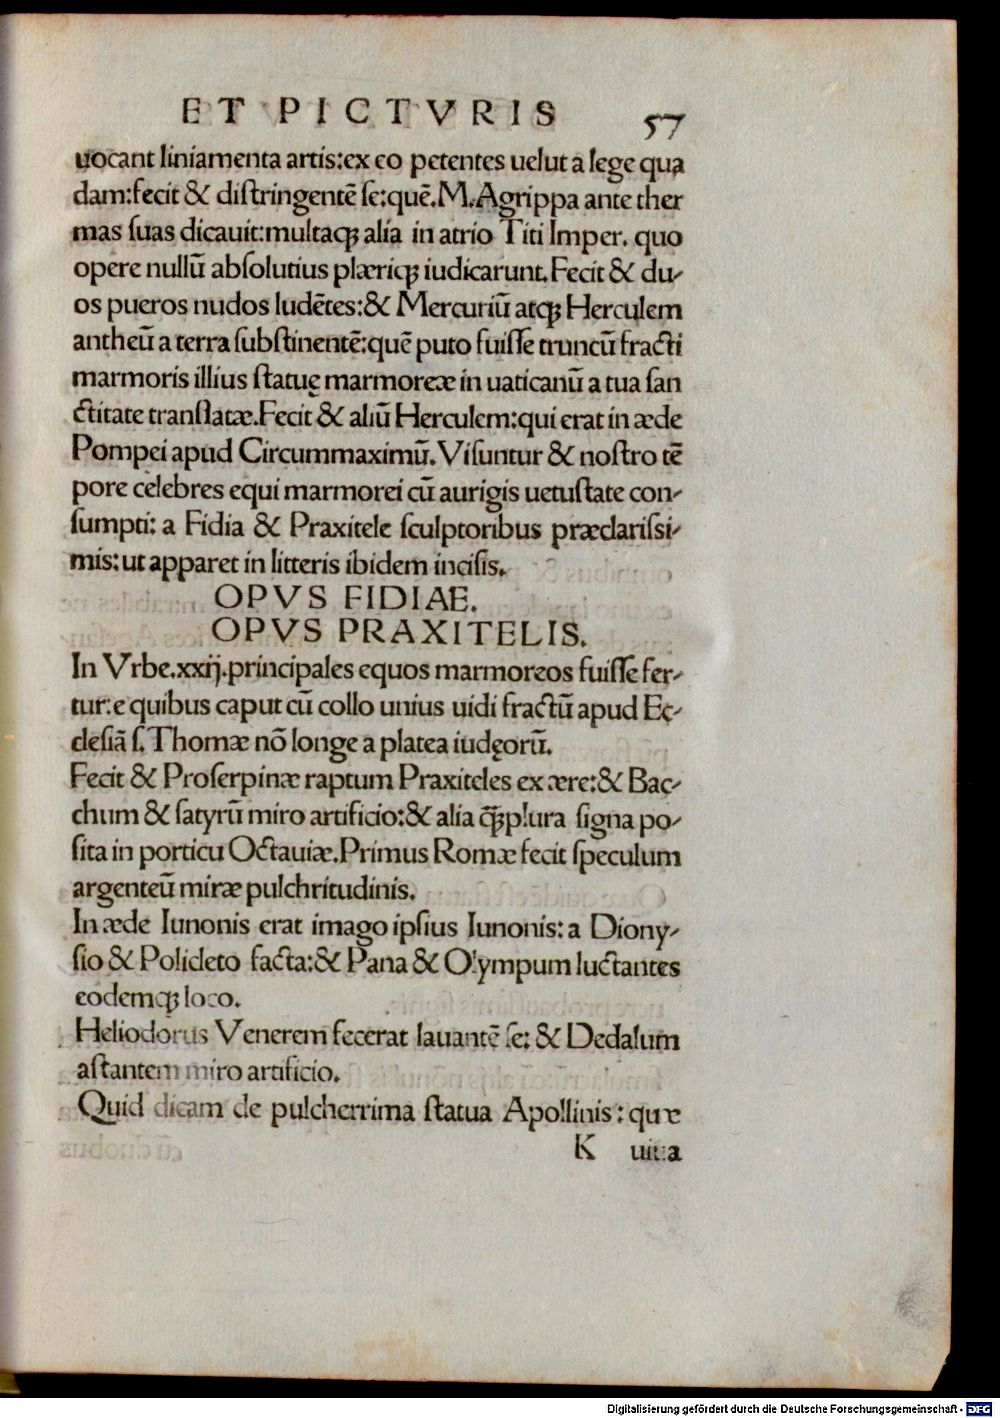 ET PICTVRIS
57
uocant liniamenta artis:ex eo petentes uelut a lege qua
dam:fecit & diſtringentē ſe:quē.M.Agrippa ante ther
mas ſuas dicauit:multaqꝫ alia in atrio Titi Imper. quo
opere nullū abſolutius plæriqꝫ iudicarunt.Fecit & du-
os pueros nudos ludētes:& Mercuriū atqꝫ Herculem
antheū a terra ſubſtinentē:quē puto fuiſſe truncū fracti
marmoris illius ſtatuę marmoreæ in uaticanū a tua ſan
ctitate tranſlatæ.Fecit & aliū Herculem:qui erat in æde
Pompei apud Circummaximū.Viſuntur & noſtro tē
pore celebres equi marmorei cū aurigis uetuſtate con-
ſumpti: a Fidia & Praxitele ſculptoribus præclariſſi-
mis:ut apparet in litteris ibidem inciſis.
OPVS FIDIAE.
OPVS PRAXITELIS.
In Vrbe.xxij.principales equos marmoreos fuiſſe fer-
tur:e quibus caput cū collo unius uidi fractū apud Ec-
cleſiā ſ.Thomæ nō longe a platea iudęorū.
Fecit & Proſerpinæ raptum Praxiteles ex ære:& Bac-
chum & ſatyrū miro artificio:& alia qꝫplura ſigna po-
ſita in porticu Octauiæ.Primus Romæ fecit ſpeculum
argenteū miræ pulchritudinis.
In æde Iunonis erat imago ipſius Iunonis: a Diony-
ſio & Policleto facta:& Pana & Olympum luctantes
eodemqꝫ loco.
Heliodorus Venerem fecerat lauantē ſe: & Dedalum
aſtantem miro artificio.
Quid dicam de pulcherrima ſtatua Apollinis: quæ
K uiua
Digitalisierung gefördert durch die Deutsche Forschungsgemeinschaft - DFG